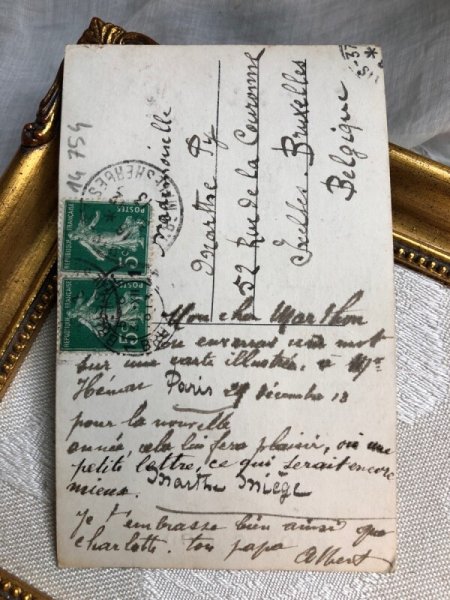 14 754
Mademoiselle
Marthe Py
52 Rue de la Couronne
Ixelles-Bruxelles
Belgique
POSTES
REPUBLIQUE FRANÇAISE
5c
POSTES
REPUBLIQUE FRANÇAISE
5c
Mon cher Marthon
Tu enverras un mot
sur une carte illustrée, à Mme
Paris 29 décembre 13
pour la nouvelle
année, cela lui fera plaisir, ou une
petite lettre, ce qui serait encore
mieux. Marthe Miège
Je t'embrasse bien ainsi que
Charlotte. ton papa
Albert